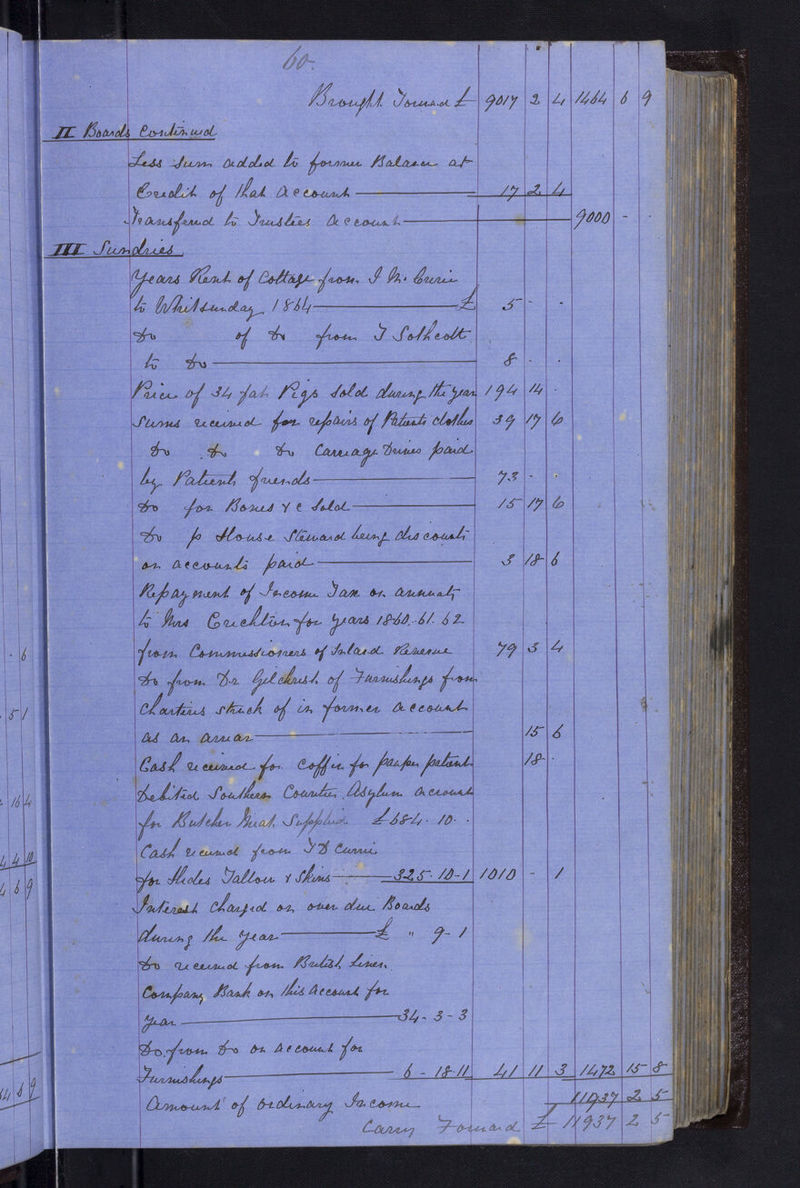 60.
Brought Forward £ 9017 2 4 1464 6 9
II Boards Continued
Less Sum added to former Balance at
Credit of that account 17 2 4
Transferred to Trustees account 9000 - -
III Sundries
Years Rent of Cottage from J Mc Curie
to Whitsunday 1864 £ 5 - -
Do of Do from J Sothcott
to Do 8 - -
Price of 34 fat Pigs sold during the year 194 14 -
Sums received for repairs of Patients clothes 39 17 6
Do Do Do Carriage Drives paid
by Patients friends 73 - -
Do for Bones &c Sold 15 17 6
Do p House Steward being discounts
on accounts paid 3 18 6
Repayment of Income Tax on annuity
to Mrs Crichton for years 1860. 61. 62
from Commissioners of Inland Revenue 79 3 4
Do from Dr Gilchrist of Furnishings from
Charteris struck of in former account
as an arrear 15 6
Cash received for coffin for pauper patient 18 -
Debited Southern Counties Asylum account
for Butcher Meat Supplied £684. 10. -
Cash received from J D Currie
for Hides Tallow & Skins 325-10-1 1010 - 1
Interest charged on over due Boards
during the year £ " 9-1
Do received from British Linen
Company Bank on this account for
year 34-3-3
Do. from Do on account for
Furnishings 6-18-11 41 11 3 1472 15 8
Amount of ordinary Income 11937 2 5
Carry Forward £ 11937 2 5
- 6
51
16 4
4 4 10
4 6 9
64 6 9